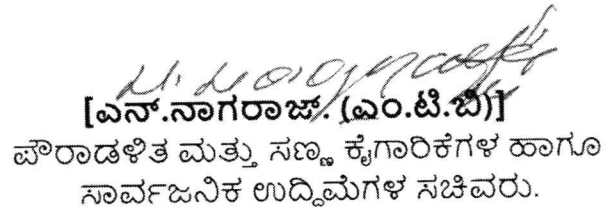 [ಎನ್.ನಾಗರಾಜ್. (ಎಂ.ಟಿ.ಬಿ)]
ಪೌರಾಡಳಿತ ಮತ್ತು ಸಣ್ಣ ಕೈಗಾರಿಕೆಗಳ ಹಾಗೂ
ಸಾರ್ವಜನಿಕ ಉದ್ದಿಮೆಗಳ ಸಚಿವರು.